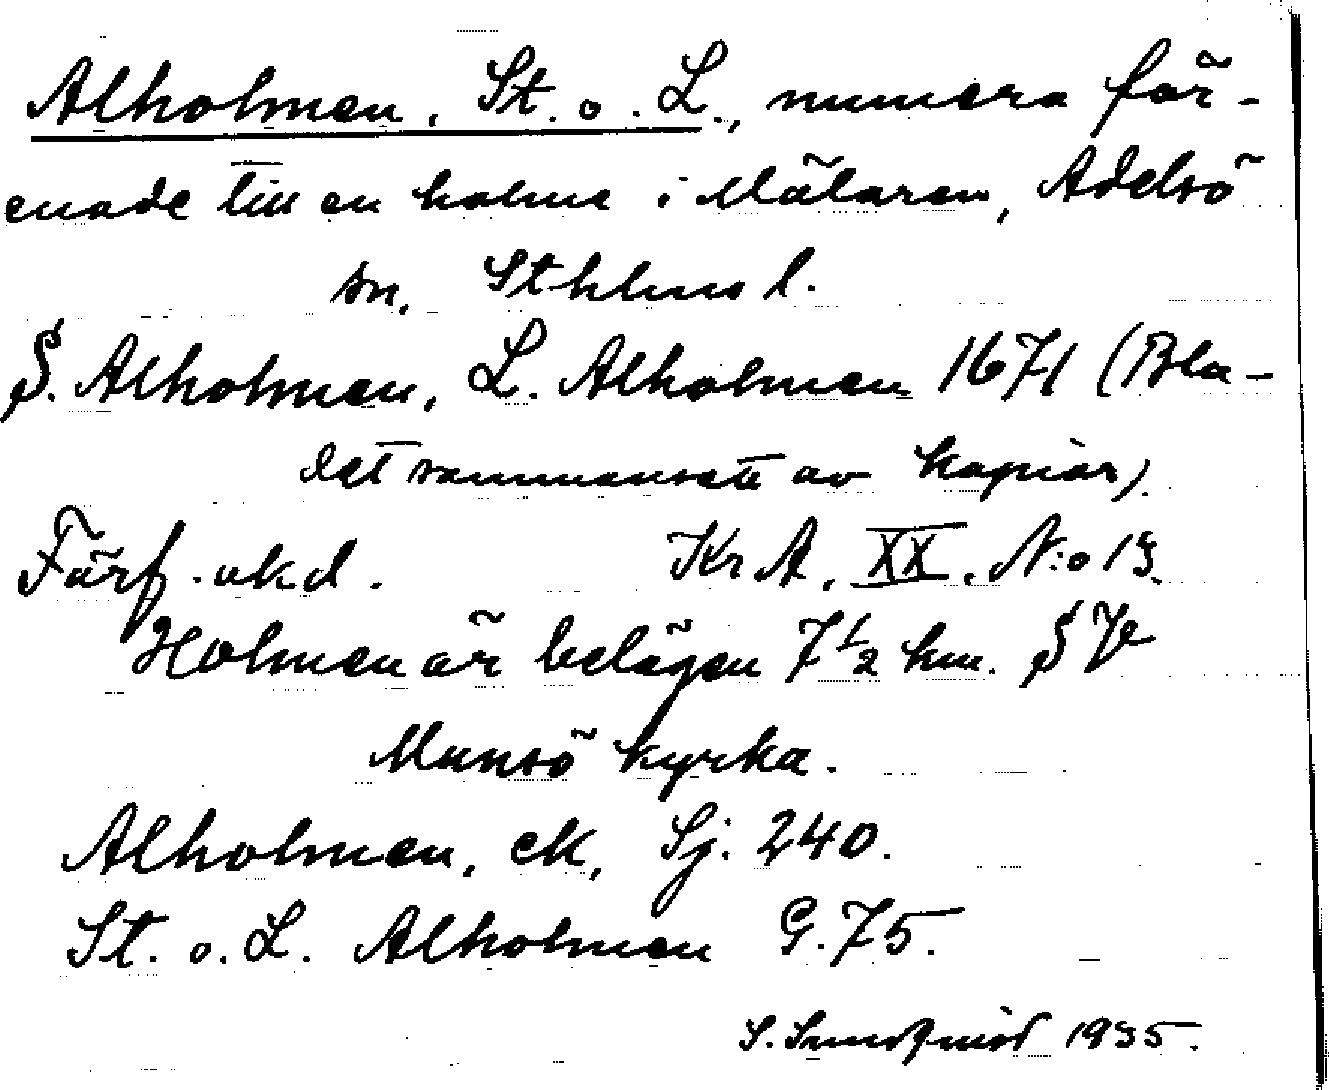 Alholmen, St. o. L., numera för-
enade till en holme i Mälaren, Adelsö
sn, Sthlms l.
S. Alholmen, L. Alholmen 1671 (Bla-
det sammansatt av kopior).
Förf. okd. KrA, XX, N:o 13.
Holmen är belägen 7 1/2 km. SV
Munsö kyrka.
Alholmen, ek, Sj. 240.
St. o. L. Alholmen G. 75.
S. 1935.